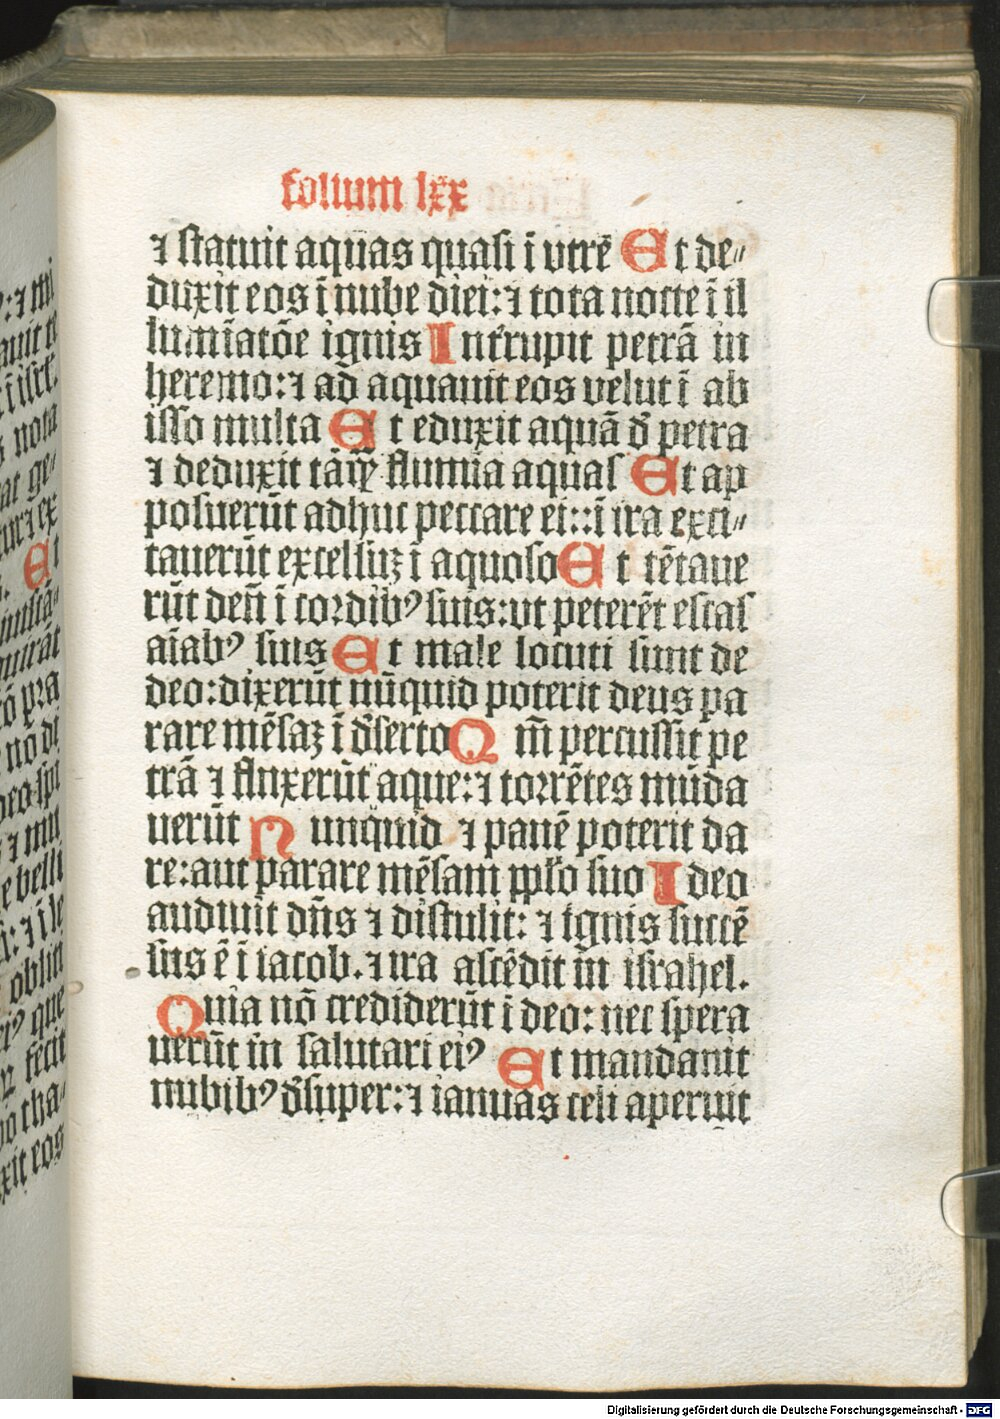 folium lxx
⁊ statuit aquas quasi ī vtrē Et de⸗
duxit eos ī nube diei:⁊ tota nocte ī il
lumīatōe ignis Int̄rupit petrā in
heremo:⁊ ad aquauit eos velut ī ab
isso multa Et eduxit aquā d̄ petra
⁊ deduxit tāꝙ̄ flumīa aquas Et ap
posuerūt adhuc peccare ei::ī ira exci⸗
tauerūt excelsuꝫ ī aquoso Et tētaue
rūt deū ī cordibꝰ suis:vt peterēt escas
aīabꝰ suis Et male locuti sunt de
deo:dixerūt nūquid poterit deus pa
rare mēsaꝫ ī d̄serto Qm̄ percussit pe
trā ⁊ fluxerūt aque:⁊ torrētes mūda
uerūt Nunquid ⁊ panē poterit da
re:aut parare mēsam pplo suo Ideo
audiuit dn̄s ⁊ distulit: ⁊ ignis succē
sus ē ī iacob.⁊ ira ascēdit in israhel.
Quia nō crediderūt ī deo: nec spera
uerūt in salutari eiꝰ Et mandauit
nubibꝰ d̄super:⁊ ianuas celi aperuit
Digitalisierung gefördert durch die Deutsche Forschungsgemeinschaft - DFG